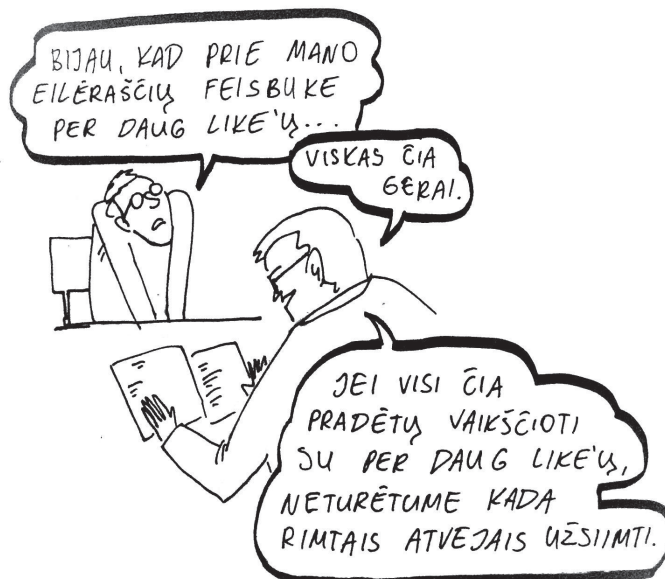 BIJAU, KAD PRIE MANO
EILĖRAŠČIŲ FEISBUKE
PER DAUG LIKE'Ų...
VISKAS ČIA
GERAI.
JEI VISI ČIA
PRADĖTŲ VAIKŠČIOTI
SU PER DAUG LIKE'Ų,
NETURĖTUME KADA
RIMTAIS ATVEJAIS UŽSIIMTI.